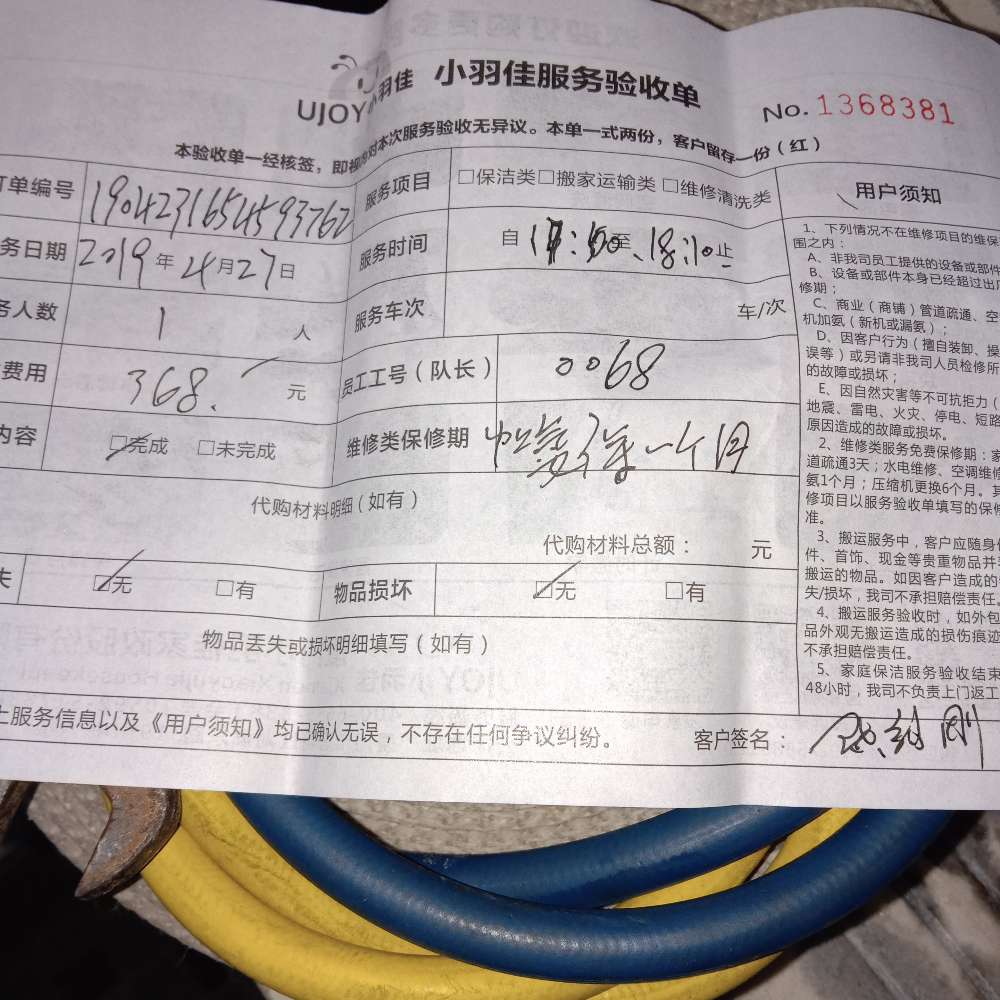 UJOY小羽佳 小羽佳服务验收单
No. 1368381
本验收单一经核签，即视为对本次服务验收无异议。本单一式两份，客户留存一份（红）
订单编号 1904231654593762 服务项目 □保洁类□搬家运输类□维修清洗类
务日期 2019年4月27日 服务时间 自 至 18:10止
务人数 1 人 服务车次 车/次
费用 368. 元 员工工号（队长） 0068
内容 □完成 □未完成 维修类保修期 一个月
代购材料明细（如有）
代购材料总额： 元
失 □无 □有 物品损坏 □无 □有
物品丢失或损坏明细填写（如有）
上服务信息以及《用户须知》均已确认无误，不存在任何争议纠纷。 客户签名：
用户须知
1、下列情况不在维修项目的维保
围之内：
A、非我司员工提供的设备或部件
B、设备或部件本身已经超过出
修期；
C、商业（商铺）管道疏通、空
机加氨（新机或漏氨）；
D、因客户行为（擅自装卸、操
误等）或另请非我司人员检修所
的故障或损坏；
E、因自然灾害等不可抗拒力（
地震、雷电、火灾、停电、短路
原因造成的故障或损坏。
2、维修类服务免费保修期：家
道疏通3天；水电维修、空调维修
氨1个月；压缩机更换6个月。其
修项目以服务验收单填写的保修
准。
3、搬运服务中，客户应随身
件、首饰、现金等贵重物品并
搬运的物品。如因客户造成的
失/损坏，我司不承担赔偿责任。
4、搬运服务验收时，如外包
品外观无搬运造成的损伤痕迹
不承担赔偿责任。
5、家庭保洁服务验收结束
48小时，我司不负责上门返工